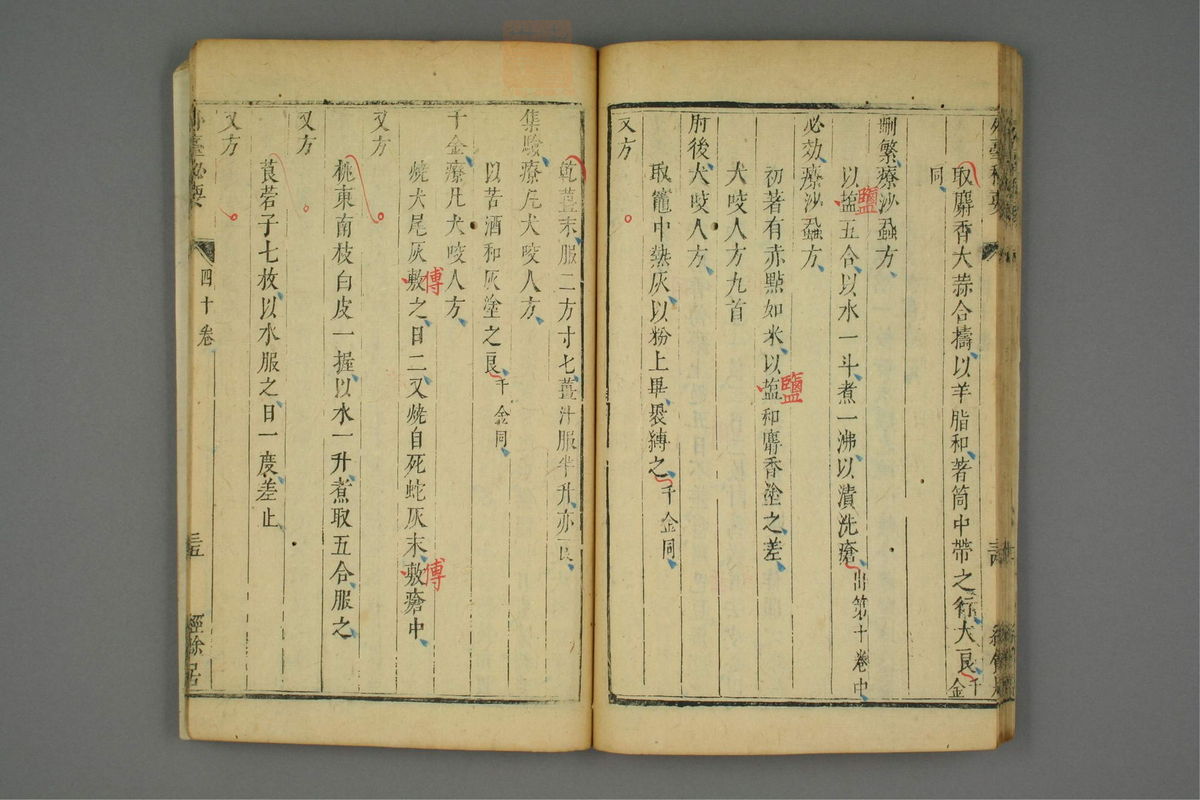 取麝香大蒜合擣以羊脂和著筒中帶之行大良千金
同
刪繁療沙蝨方
以塩五合以水一斗煮一沸以漬洗瘡出第十卷中
鹽
必効療沙蝨方
初著有赤點如米以塩和麝香塗之差
鹽
犬咬人方九首
肘後犬咬人方
取竈中熱灰以粉上畢裹縛之千金同
又方
乾薑末服二方寸匕薑汁服半升亦良
集驗療凡犬咬人方
以苦酒和灰塗之良千金同
千金療凡犬咬人方
燒犬尾灰敷之日二又燒自死蛇灰末敷瘡中
傅
傅
又方
桃東南枝白皮一握以水一升煮取五合服之
又方
莨菪子七枚以水服之日一度差止
又方
外臺祕要
四十卷
三五
經餘居